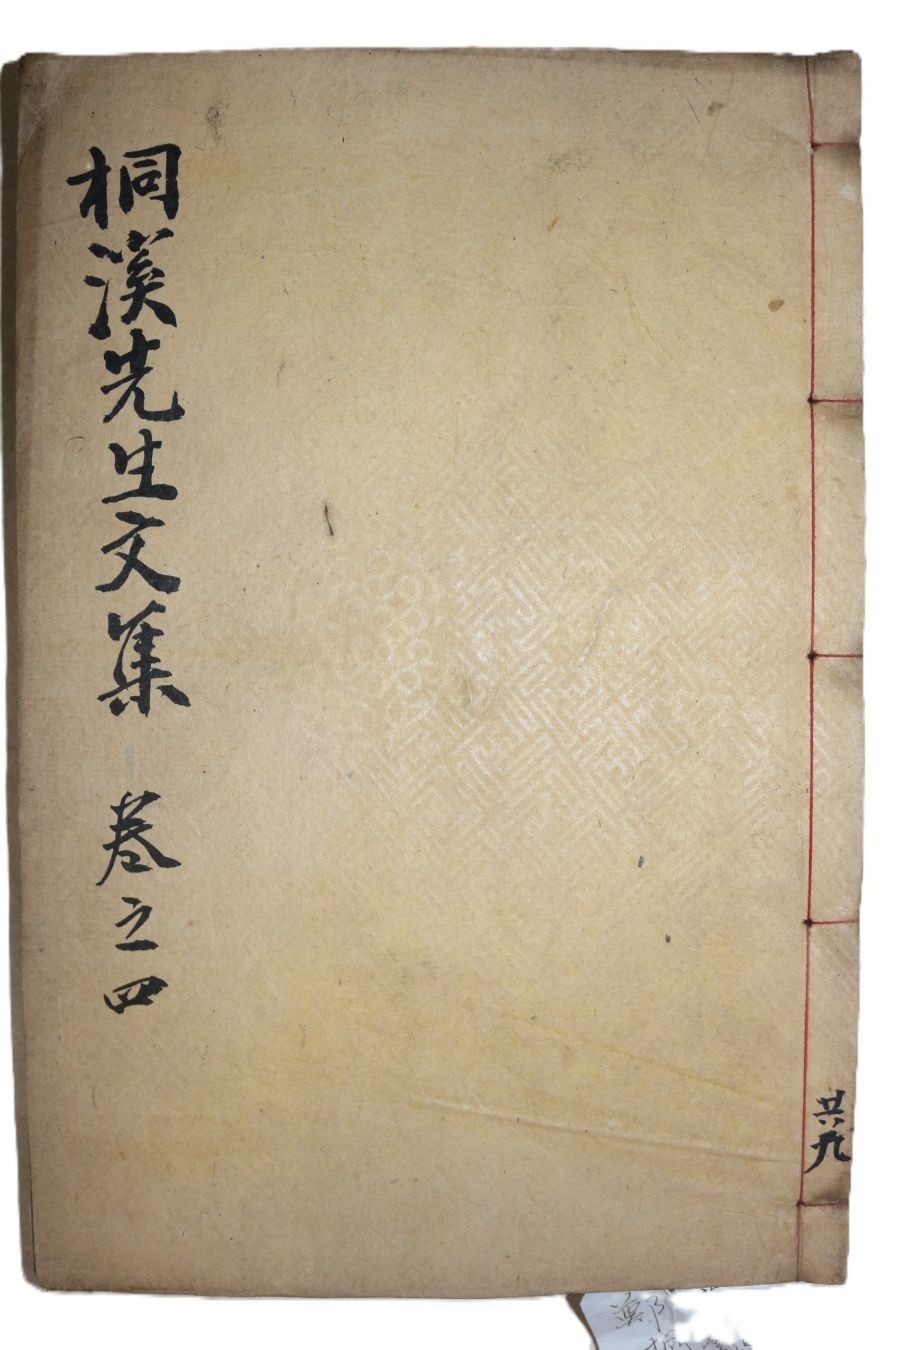 桐溪先生文集 卷之四
共九